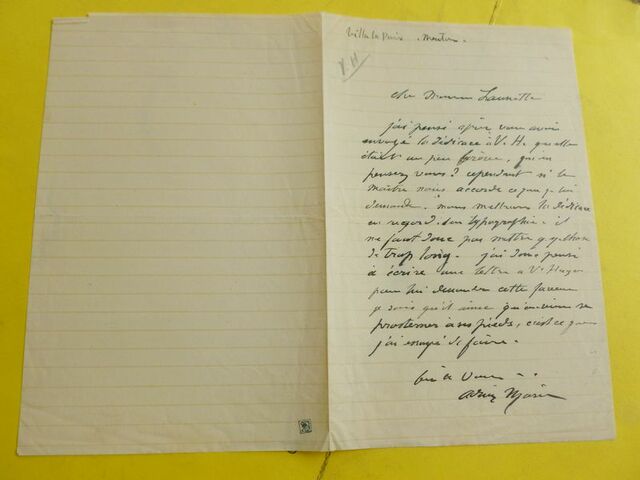 Villa la Paix. Menton.
V H
cher Monsieur Launette
j'ai pensé après vous avoir
envoyé la dédicace à V. H. qu'elle
était un peu brève, qu'en
pensez vous? cependant si le
maître nous accorde ce que je lui
demande. nous mettrons la dédicace
en regard. typographie. il
ne faut donc pas mettre quelque chose
de trop long. j'ai donc pensé
à écrire une lettre à V. Hugo
pour lui demander cette faveur
je sais qu'il aime qu'on vienne se
prosterner à ses pieds, c'est ce que
j'ai essayé de faire.
bien à vous
Adrien Marie